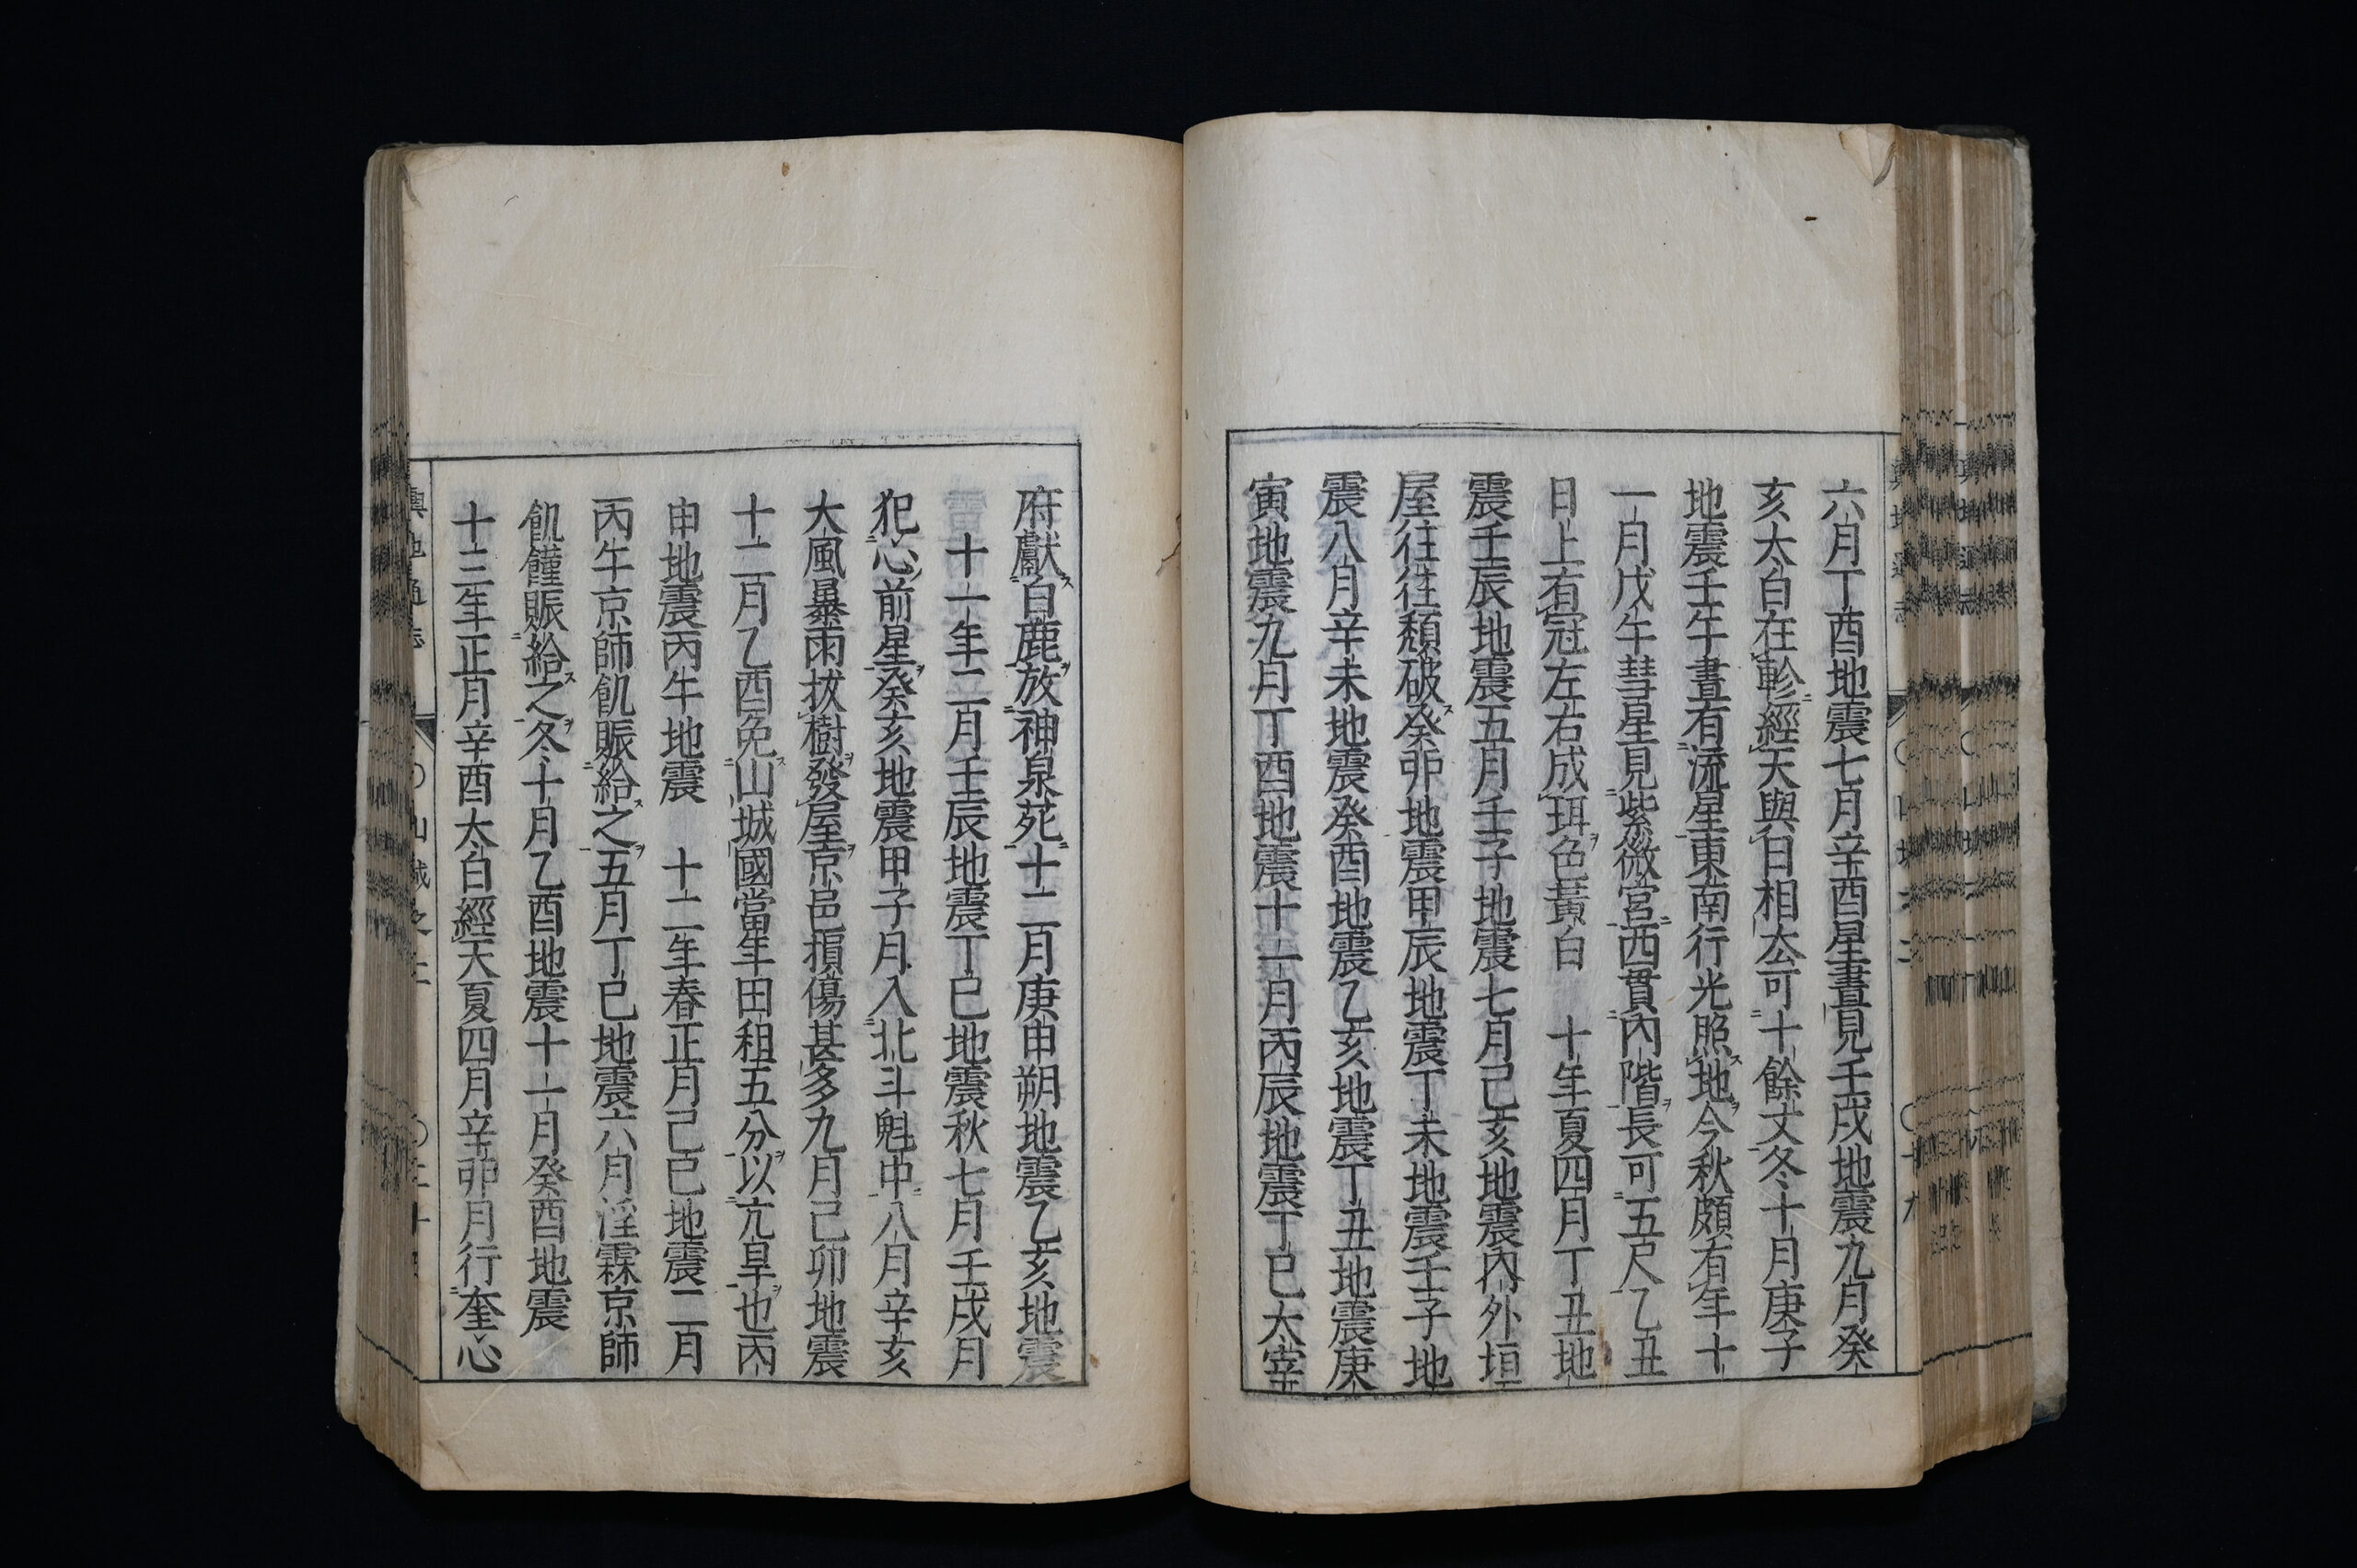 六月丁酉地震七月辛酉星晝見壬戌地震九月癸
亥太白在軫經天與日相去可十餘丈冬十月庚子
地震壬午晝有流星東南行光照地今秋頗有年十
一月戊午彗星見紫微宮西貫內階長可五尺乙丑
日上有冠左右成珥色黃白　十年夏四月丁丑地
震壬辰地震五月壬子地震七月己亥地震內外垣
屋往往頹破癸卯地震甲辰地震丁未地震壬子地
震八月辛未地震癸酉地震乙亥地震丁丑地震庚
寅地震九月丁酉地震十一月丙辰地震丁巳太宰
府獻白鹿放神泉苑十二月庚申朔地震乙亥地震
十一年二月壬辰地震丁巳地震秋七月壬戌月
犯心前星癸亥地震甲子月入北斗魁中八月辛亥
大風暴雨拔樹發屋京邑損傷甚多九月己卯地震
十二月乙酉免山城國當年田租五分以亢旱也丙
申地震丙午地震　十二年春正月己巳地震二月
丙午京師飢賑給之五月丁巳地震六月淫霖京師
飢饉賑給之冬十月乙酉地震十一月癸酉地震
十三年正月辛酉太白經天夏四月辛卯月行奎心